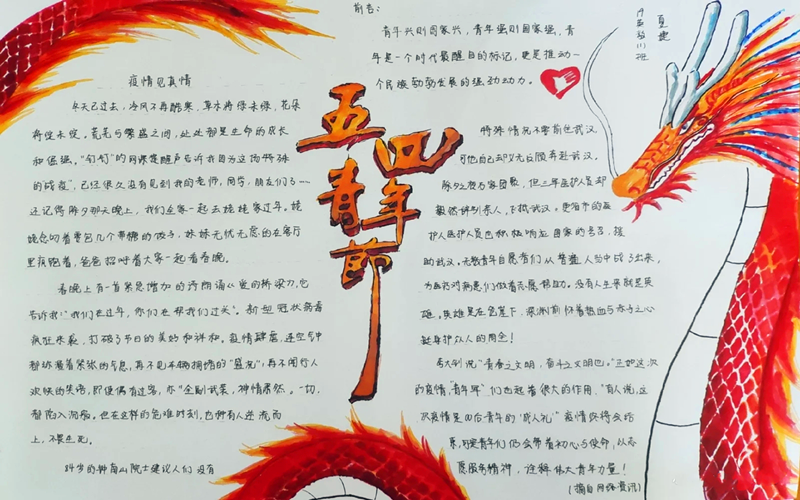 疫情见真情
冬天已过去，冷风不再醒寒，草木将绿未绿，花朵
将绽未绽。荒芜与繁盛之间，处处都是生命的成长
和倔强。“钉钉”的网课提醒声告诉我因为这场特殊
的“战疫”，已经很久没有见到我的老师，同学，朋友们了…
还记得除夕那天晚上，我们全家一起去姥姥家过年。姥
姥念叨着要包几个带糖的饺子，妹妹无忧无虑的在客厅
里疯跑着，爸爸招呼着大家一起看春晚。
春晚上有一首紧急增加的诗朗诵《爱的桥梁》，它
告诉我：“我们在过年，你们在帮我们过关”。新型冠状病毒
疯狂来袭，打破了节日的美好和祥和。疫情肆虐，连空气中
都弥漫着紧张的气息，再不见车辆拥堵的“盛况”；再不闻行人
欢快的笑语，即便偶有过客，亦“全副武装，神情肃然。一切，
都陷入洞殇。但在这样的危难时刻，也即有人逆流而
上，不畏生死。
84岁的钟南山院士建议人们没有
五四青年節
前言：
青年兴则国家兴，青年强则国家强，青
年是一个时代最醒目的标记，更是推动一
个民族勃勃发展的强劲动力。
夏捷
特殊情况不要前往武汉
可他自己却义无反顾奔赴武汉。
除夕夜万家团聚，但三军医护人员却
毅然辞别亲人，下抵武汉。更有市的医
护人医护人员也积极响应国家的号召，援
助武汉。无数青年自愿者们从普鉴人当中成了出来，
为医药对病患们做着志愿援助。没有人生来就是英
雄。英雄是在危难下，深渊前怀着热血与赤子之心
挺身护众人的周全！
李大钊说“青春之文明，奋斗之文明也。”正如这次
的疫情，“青年军”们也起着很大的作用。“有人说，这
次疫情是00后青年的‘成人礼’”疫情终将会结
束，可是青年们仍会带着初心与使命，以志
愿服务精神，诠释伟大青年力量！
（摘自网络资讯）